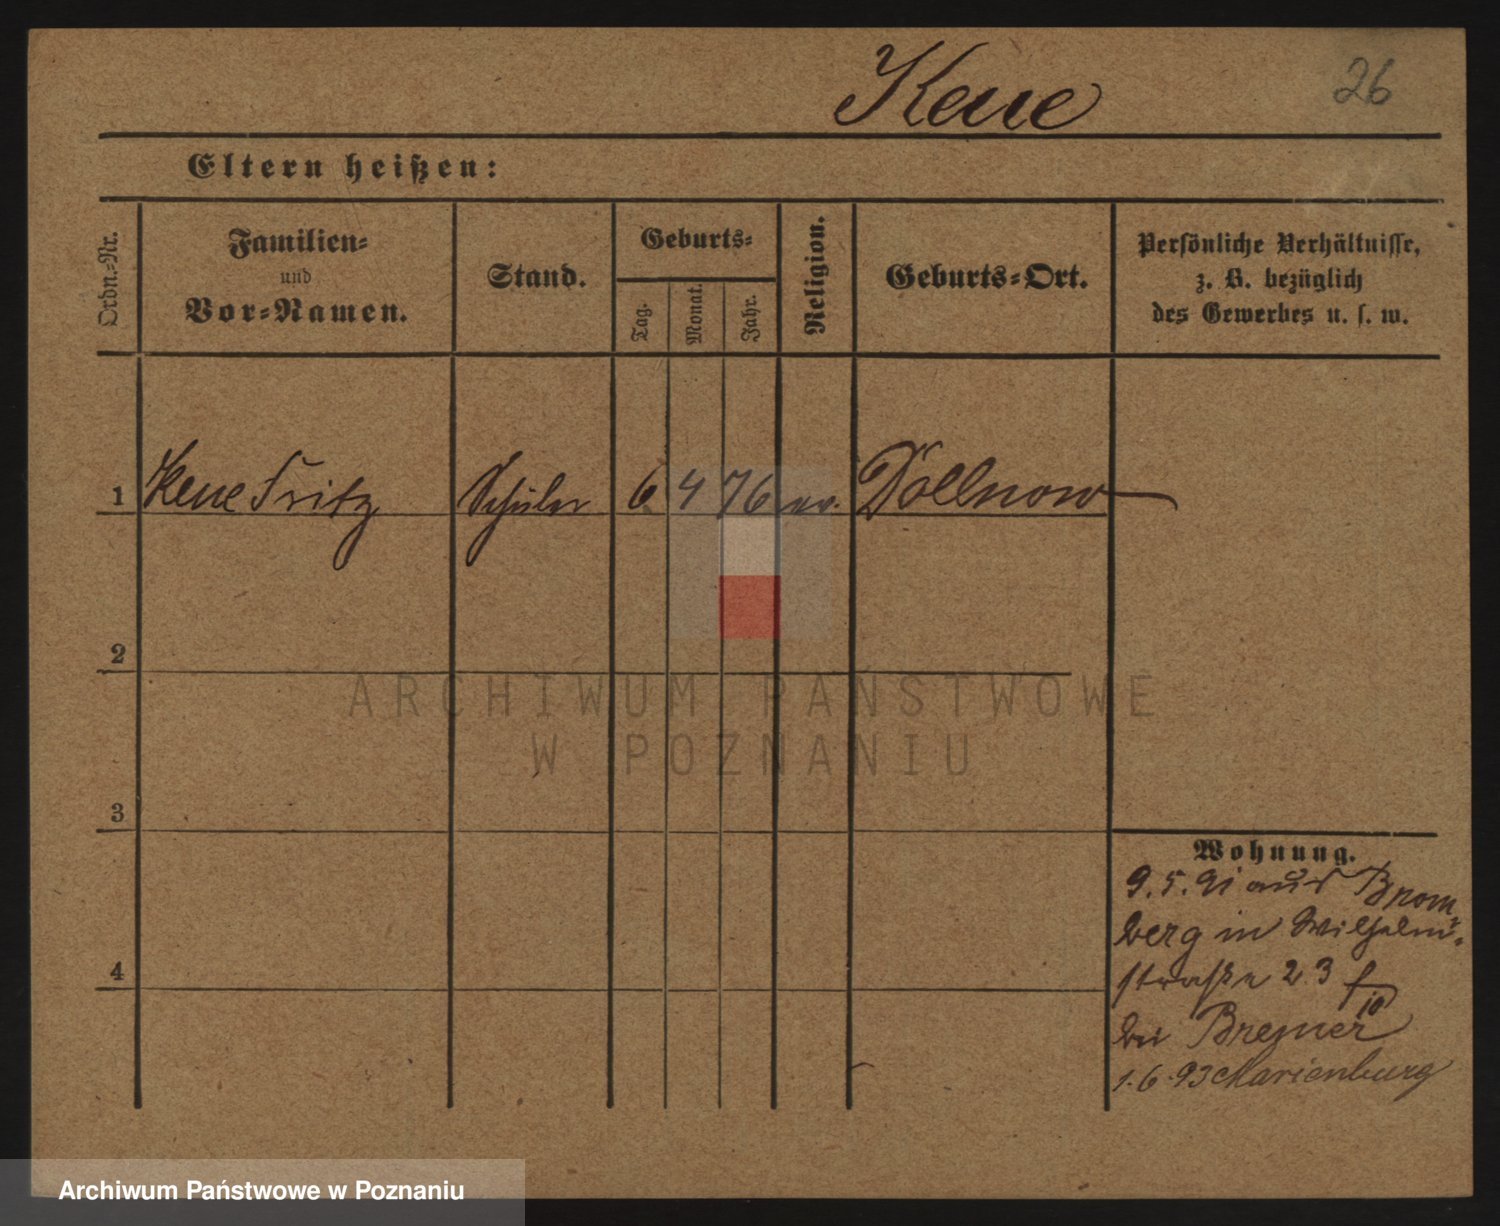 Keue
26
Eltern heißen:
Ordn.-Nr.
Familien-
und
Vor-Namen.
Stand.
Geburts-
Tag.
Monat.
Jahr.
Religion.
Geburts-Ort.
Persönliche Verhältnisse,
z. B. bezüglich
des Gewerbes u. s. w.
1 Keue Fritz Schüler 6 4 76 ev. Döllnow
2
3
4
Wohnung.
9.5.91 aus Brom
berg in Wilhelm-
straße 23
bei Bremer
1.6.93 Marienburg
ARCHIWUM PAŃSTWOWE
W POZNANIU
Archiwum Państwowe w Poznaniu